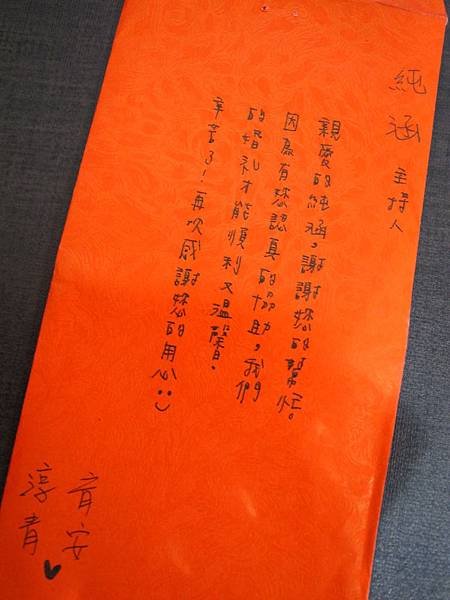 純涵 主持人
親愛的純涵，謝謝您的幫忙。
因為有您認真的協助，我們
的婚礼才能順利又溫馨。
辛苦了！再次感謝您的用心:)
育安
淳青♥